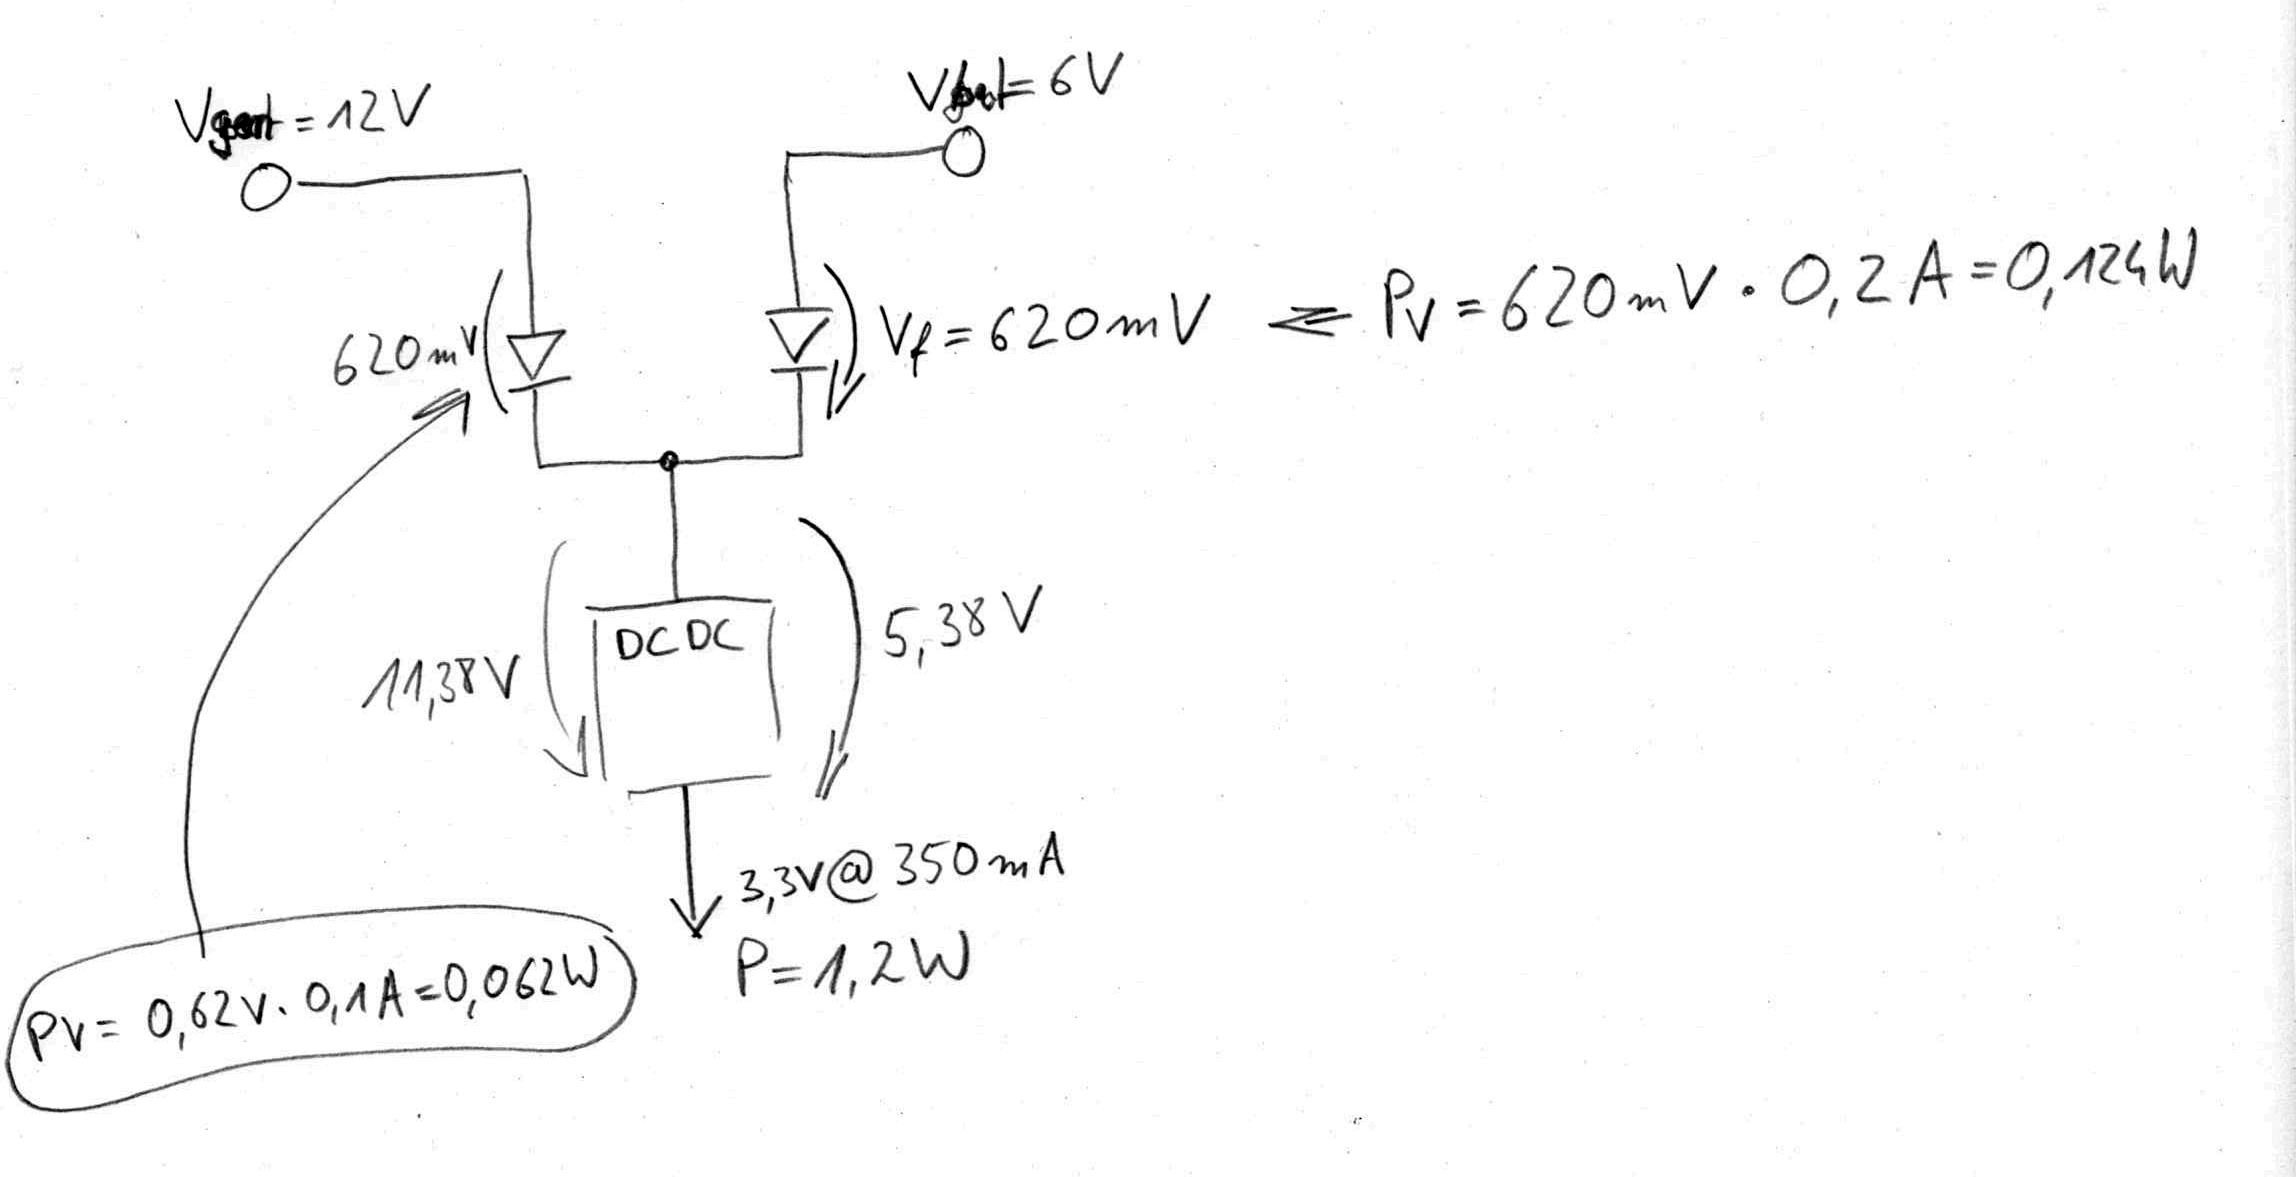 = 12V
= 6V
620mV
Vf = 620mV
Pv = 620mV · 0,2A = 0,124W
DCDC
11,38V
5,38V
3,3V @ 350mA
P = 1,2W
Pv = 0,62V · 0,1A = 0,062W